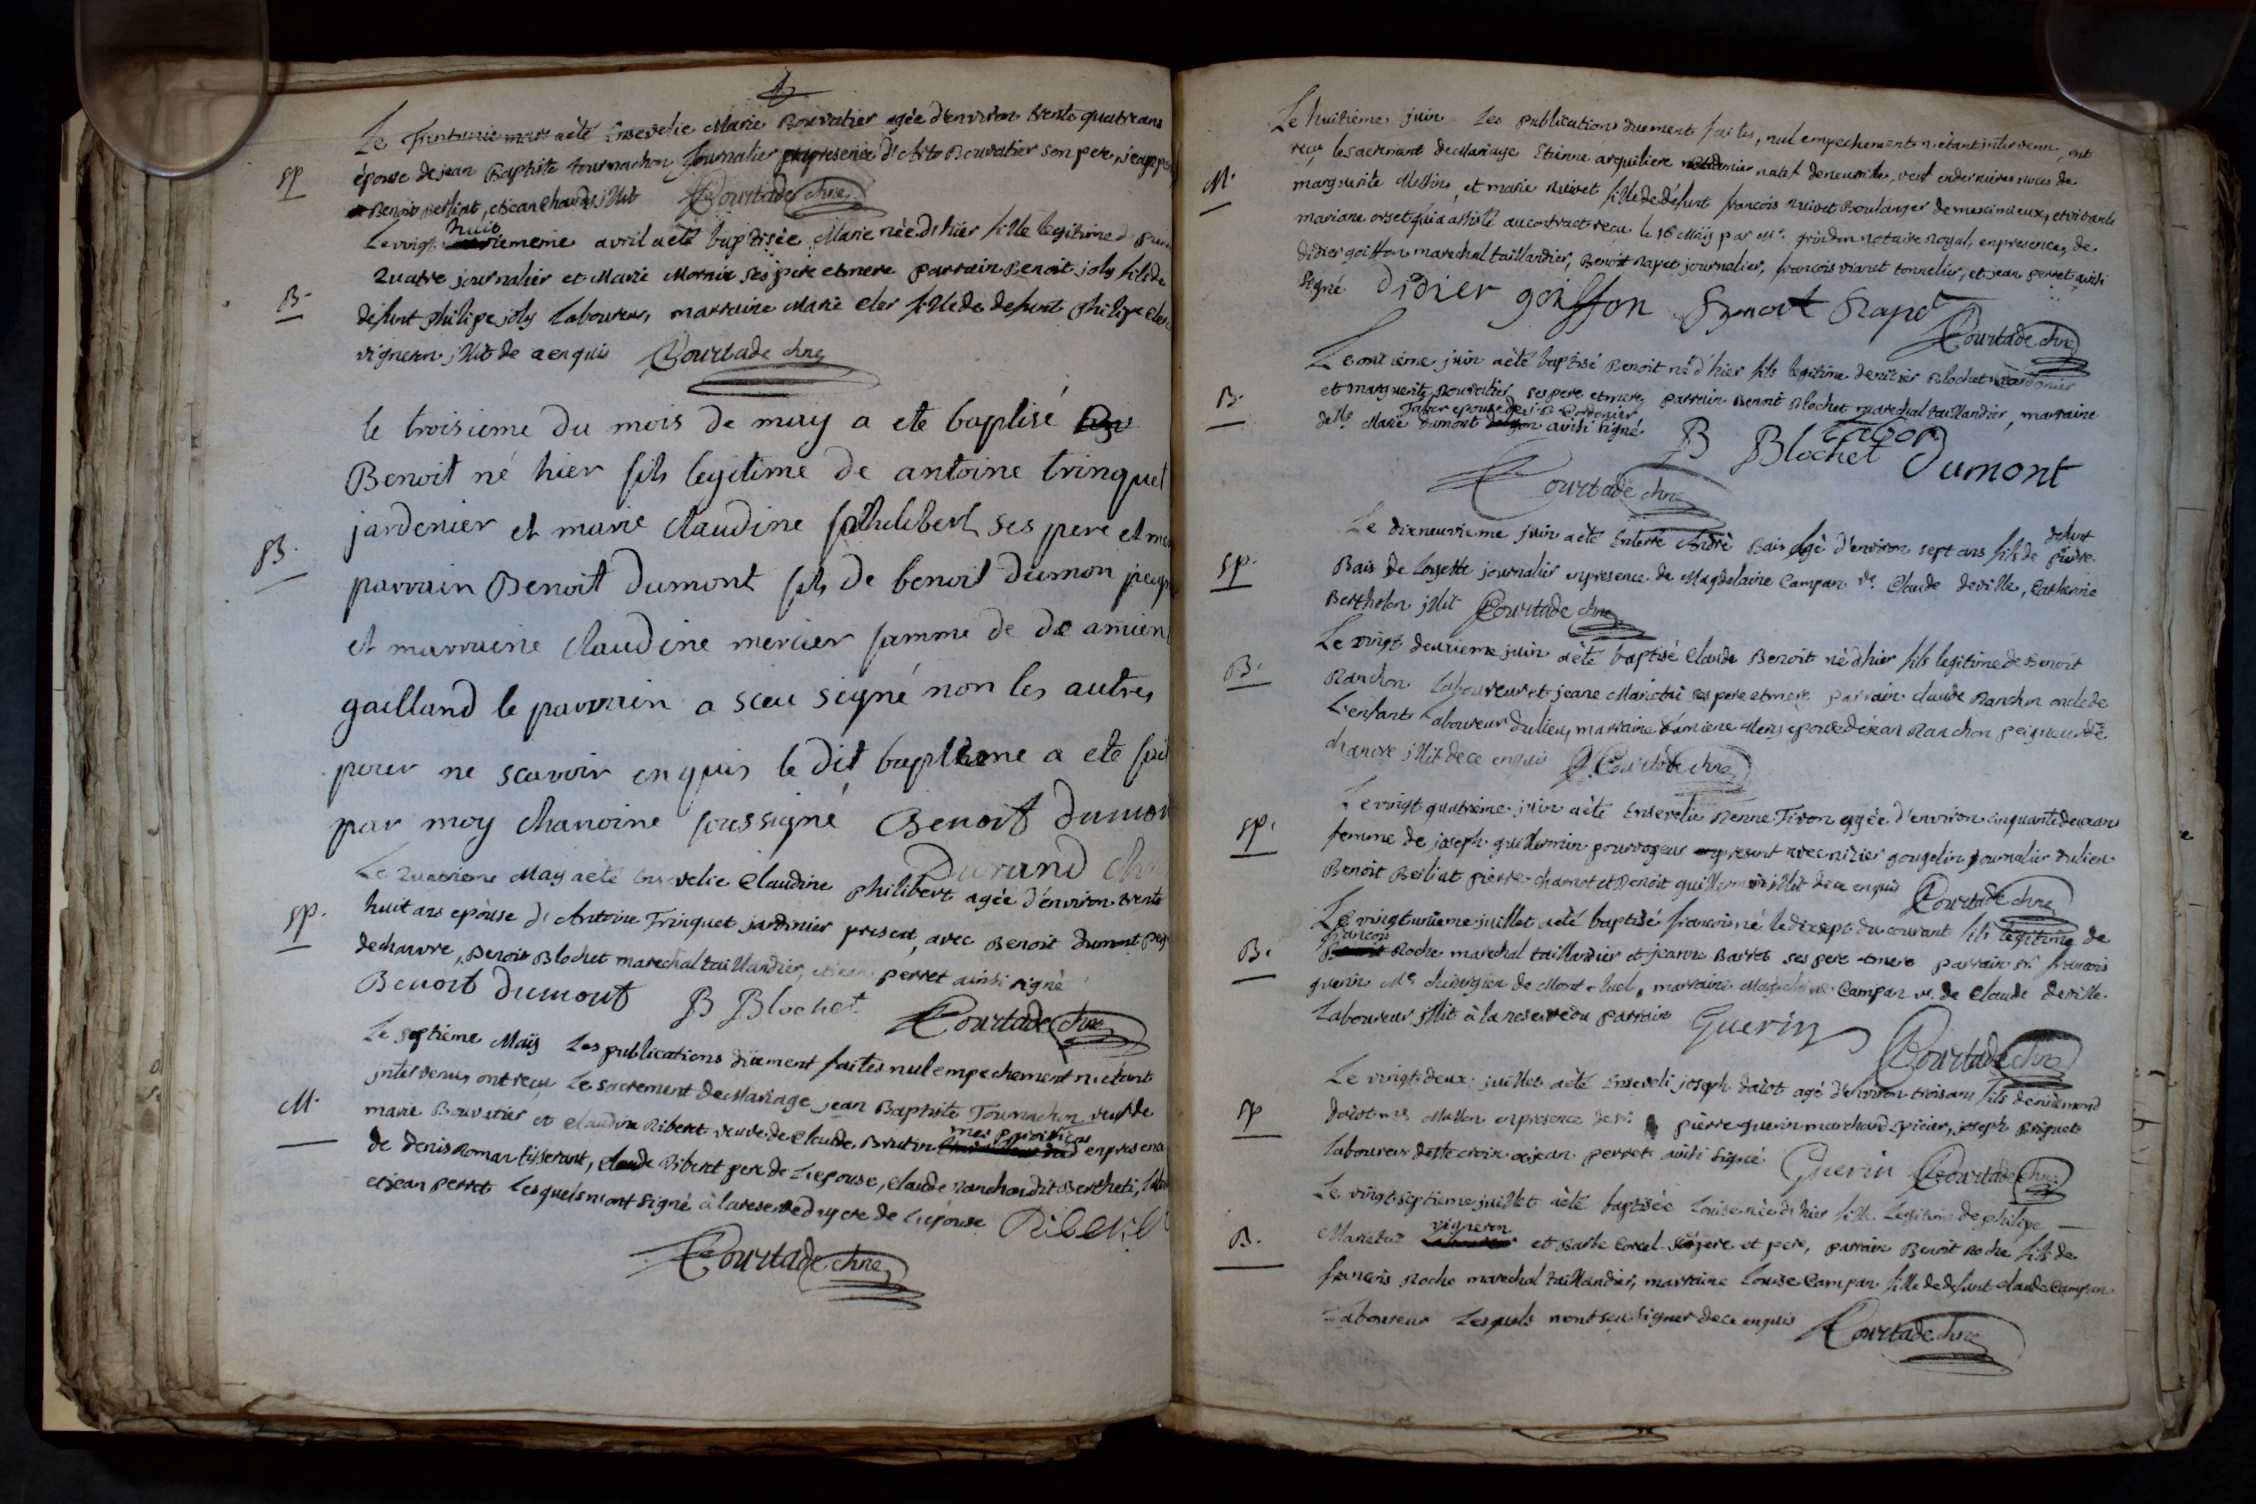 Le Trentunie mars aété Ensevelie Marie Bouvatier agée d'environ trente quatre ans
sp
épouse de jean Baptiste tournachon journalier presence d' Bouvatier son pere,
Benoit berliat, et jean illit Courtade chne
huit
Le vingt avril aeté baptisée Marie née d'hier fille legitime d
quatre journalier et Marie Mornix ses pere et mere parrain Benoit joly fils de
B.
defunt philipe joly Laboureur, marraine Marie eler fille de defunt philipe eler
vigneron illit de a enquis Courtade chne
le troisieme du mois de may a ete baptisé
Benoit né hier fils legitime de antoine trinquet
jardenier et marie claudine philibert ses pere et me
B.
parrain Benoit dumont fils de benoit dumon
et marraine claudine mercier famme de de amien
gailland le parrain a sceu signé non les autres
pour ne scavoir enquis le dit baptême a ete
par moy chanoine soussigné Benoit dumon
Durand ch
Le quatrieme May aété Ensevelie Claudine philibert agée d'environ trente
sp.
huit ans epouse d' Antoine Trinquet jardinier present, avec Benoit dumont
de chanvre, Benoit Blochet marechal taillandier, et jean perret ainsi signé
Benoit dumont B Blochet Courtade chne
Le septieme Maÿ Les publications düement faites nul empechement nietant
intervenu, ont reçu Le sacrement de Mariage jean Baptiste Tournachon veuf de
M.
marie Bouvatier et claudine Riberet veuve de Claude Brutin en presence
de denis Romar tisserant, Claude Riberet pere de L'epouse, Claude Ranchon dit Berthet,
et jean perret Lesquels nont signé à la reserve du pere de L'epouse Riberet
Courtade chne
Le huitième juin Les publications duement faites, nul empechement nietant intervenu, ont
reçu le sacrement de Mariage Etienne arquiliere natif de neuville, veuf en dernieres noces de
M.
marguerite Messin, et marie Ruivet fille de défunt francois Ruivet Boulanger de meximieux, et vivante
mariane orset qui a assisté au contract recu le 16 Maÿ par Mr. grindon notaire Royal, en presence, de
didier goiffon marechal taillandier, Benoit Rapet journalier, francois vianet tonnelier, et jean perret ainsi
signé. Didier goiffon Benoit Rape
Courtade chne
Le onzieme juin aété baptisé Benoit né d'hier fils legitime de nizier Blochet
B.
et marguerite Bouvatier ses pere et mere, parrain Benoit Blochet marechal taillandier, marraine
Tabor epouse de Sr. Cordonier
delle Marie dumont ainsi signé
B Blochet Tabor Dumont
Courtade chne
Le dixneuvieme juin aété Enterré André Bais agé d'environ sept ans fils de defunt pierre
sp.
Bais de Loyette journalier en presence de Magdelaine Campan ve. Claude deville, Catherine
Bertholon illit Courtade chne
Le vingt deuxieme juin aété baptisé Claude Benoit né d'hier fils legitime de Benoit
B.
Ranchon Laboureur et jeane ses pere et mere parrain Claude Ranchon oncle de
L'enfant Laboureur du lieu, marraine damiene Mery epouse de jean Ranchon peigneur de
chanvre illit de ce enquis Courtade chne
Le vingt quatrieme juin aété Ensevelie Renne Tivon agée d'environ cinquante deux ans
sp.
femme de joseph guillermin pourvoyeur present avec nizier gougelin journalier du lieu
Benoit Berliat pierre charvet et Benoit guillermin illit de ce enquis Courtade chne
Le vingt unieme juillet aété baptisé francois né le dixsept du courant fils legitime de
B.
francois Roche marechal taillandier et jeanne Barret ses pere et mere parrain sr. francois
guerin Me. chirurgien de Mont-luel, marraine Magdelaine Campan ve. de Claude deville
Laboureur illit à la reserve du parrain Guerin
Courtade chne
Le vingt deux juillet aété Enseveli joseph daiot agé d'environ trois ans fils de
sp
daiot en presence de sr. pierre guerin marchand epicier, joseph Briguet
Laboureur de ste croix et jean perret ainsi signé. Guerin Courtade chne
Le vingt septieme juillet aété baptisée Louise née d'hier fille Legitime de philipe
vigneron
B.
Manetus et Barbe Corcel pere et pere, parrain Benoit Roche fils de
francois Roche marechal taillandier, marraine Louise Campan fille de defunt claude Campan
Laboureur Lesquels nont sçu signer de ce enquis Courtade chne